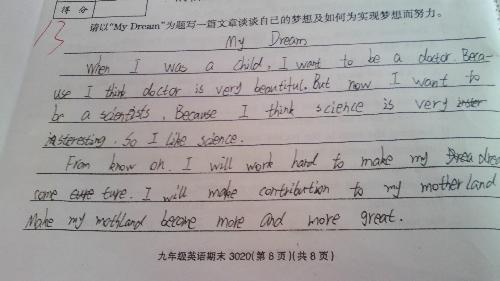 得 分
13
请以“My Dream”为题写一篇文章谈谈自己的梦想及如何为实现梦想而努力。
My Dream
When I was a child, I want to be a doctor. Beca-
use I think doctor is very beautiful. But now I want to
be a scientists. Because I think science is very
interesting. So I like science.
From know on. I will work hard to make my drea
come ture. I will make contribution to my motherland
Make my mothland become more and more great.
九年级英语期末 3020(第 8 页)(共 8 页)